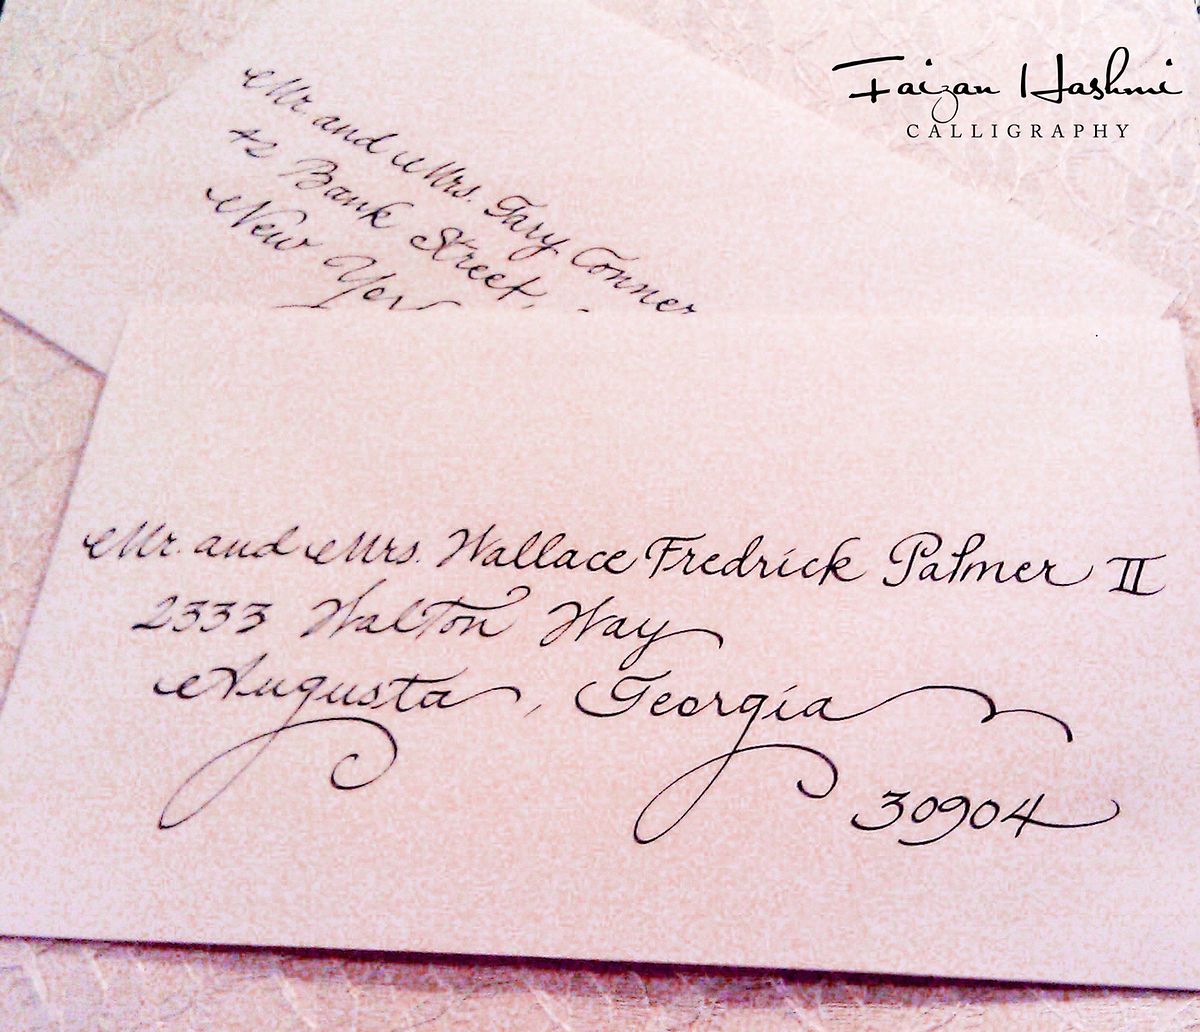 Faizan Hashmi
CALLIGRAPHY
Mr. and Mrs. Gary Conner
42 Bank Street,
New Yor
Mr. and Mrs. Wallace Fredrick Palmer II
2333 Walton Way
Augusta, Georgia
30904